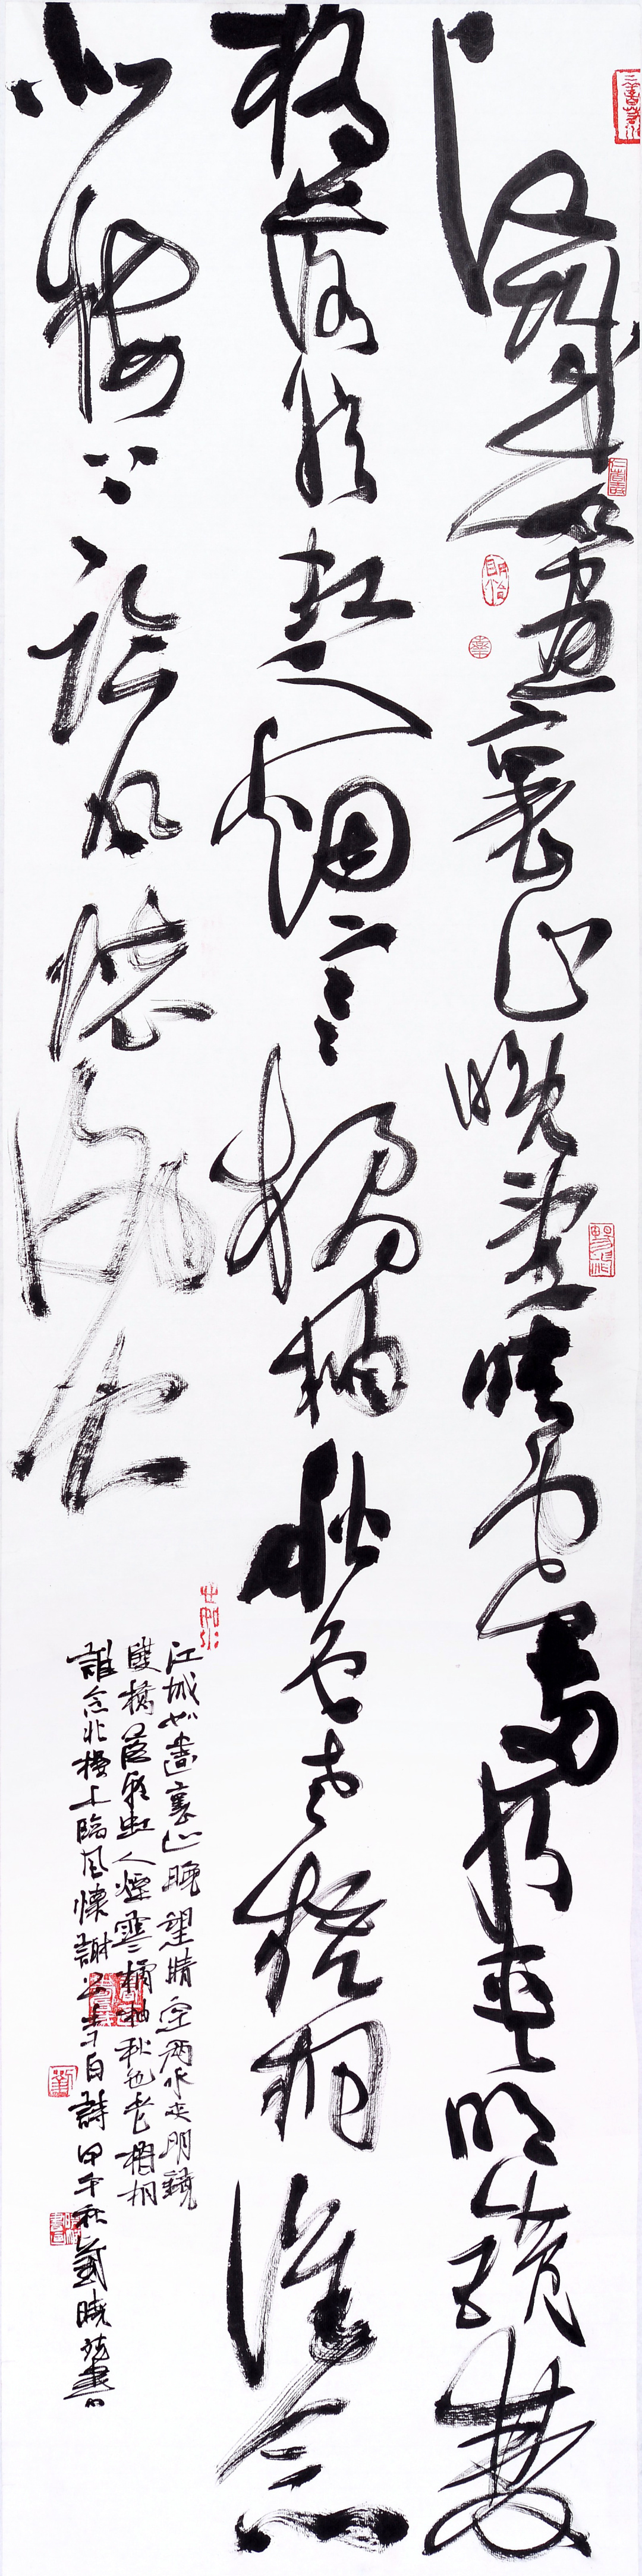 江城如畫裏山晚望晴空兩水夾明鏡雙
橋落彩虹人烟寒橘柚秋色老梧桐誰念
北樓上臨風懷謝公
江城如畫裏山晚望晴空兩水夾明鏡
雙橋落彩虹人煙寒橘柚秋色老梧桐
誰念北樓上臨風懷謝公李白詩甲午秋曉書